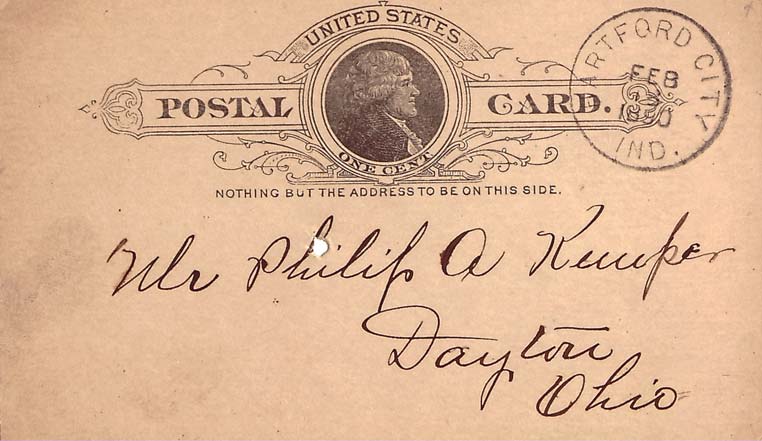 UNITED STATES
POSTAL CARD.
ONE CENT
NOTHING BUT THE ADDRESS TO BE ON THIS SIDE.
ARTFORD CITY
FEB
IND.
Mr Philip A Kemper
Dayton
Ohio